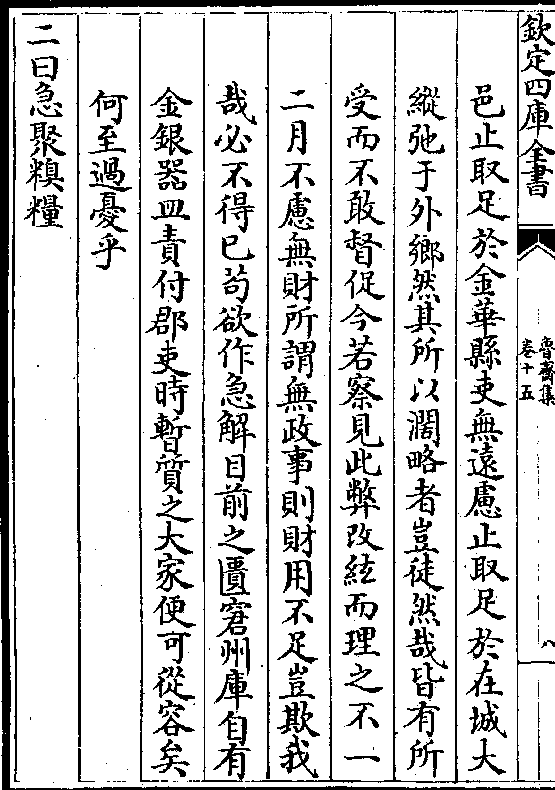 欽定四庫全書
魯齋集
卷十五
八
邑止取足於金華縣吏無遠慮止取足於在城大
縱弛于外鄉然其所以濶略者豈徒然哉皆有所
受而不敢督促今若察見此弊改絃而理之不一
二月不慮無財所謂無政事則財用不足豈欺我
哉必不得已苟欲作急解目前之匱窘州庫自有
金銀器皿責付郡吏時暫質之大家便可從容矣
何至過憂乎
二曰急聚糗糧